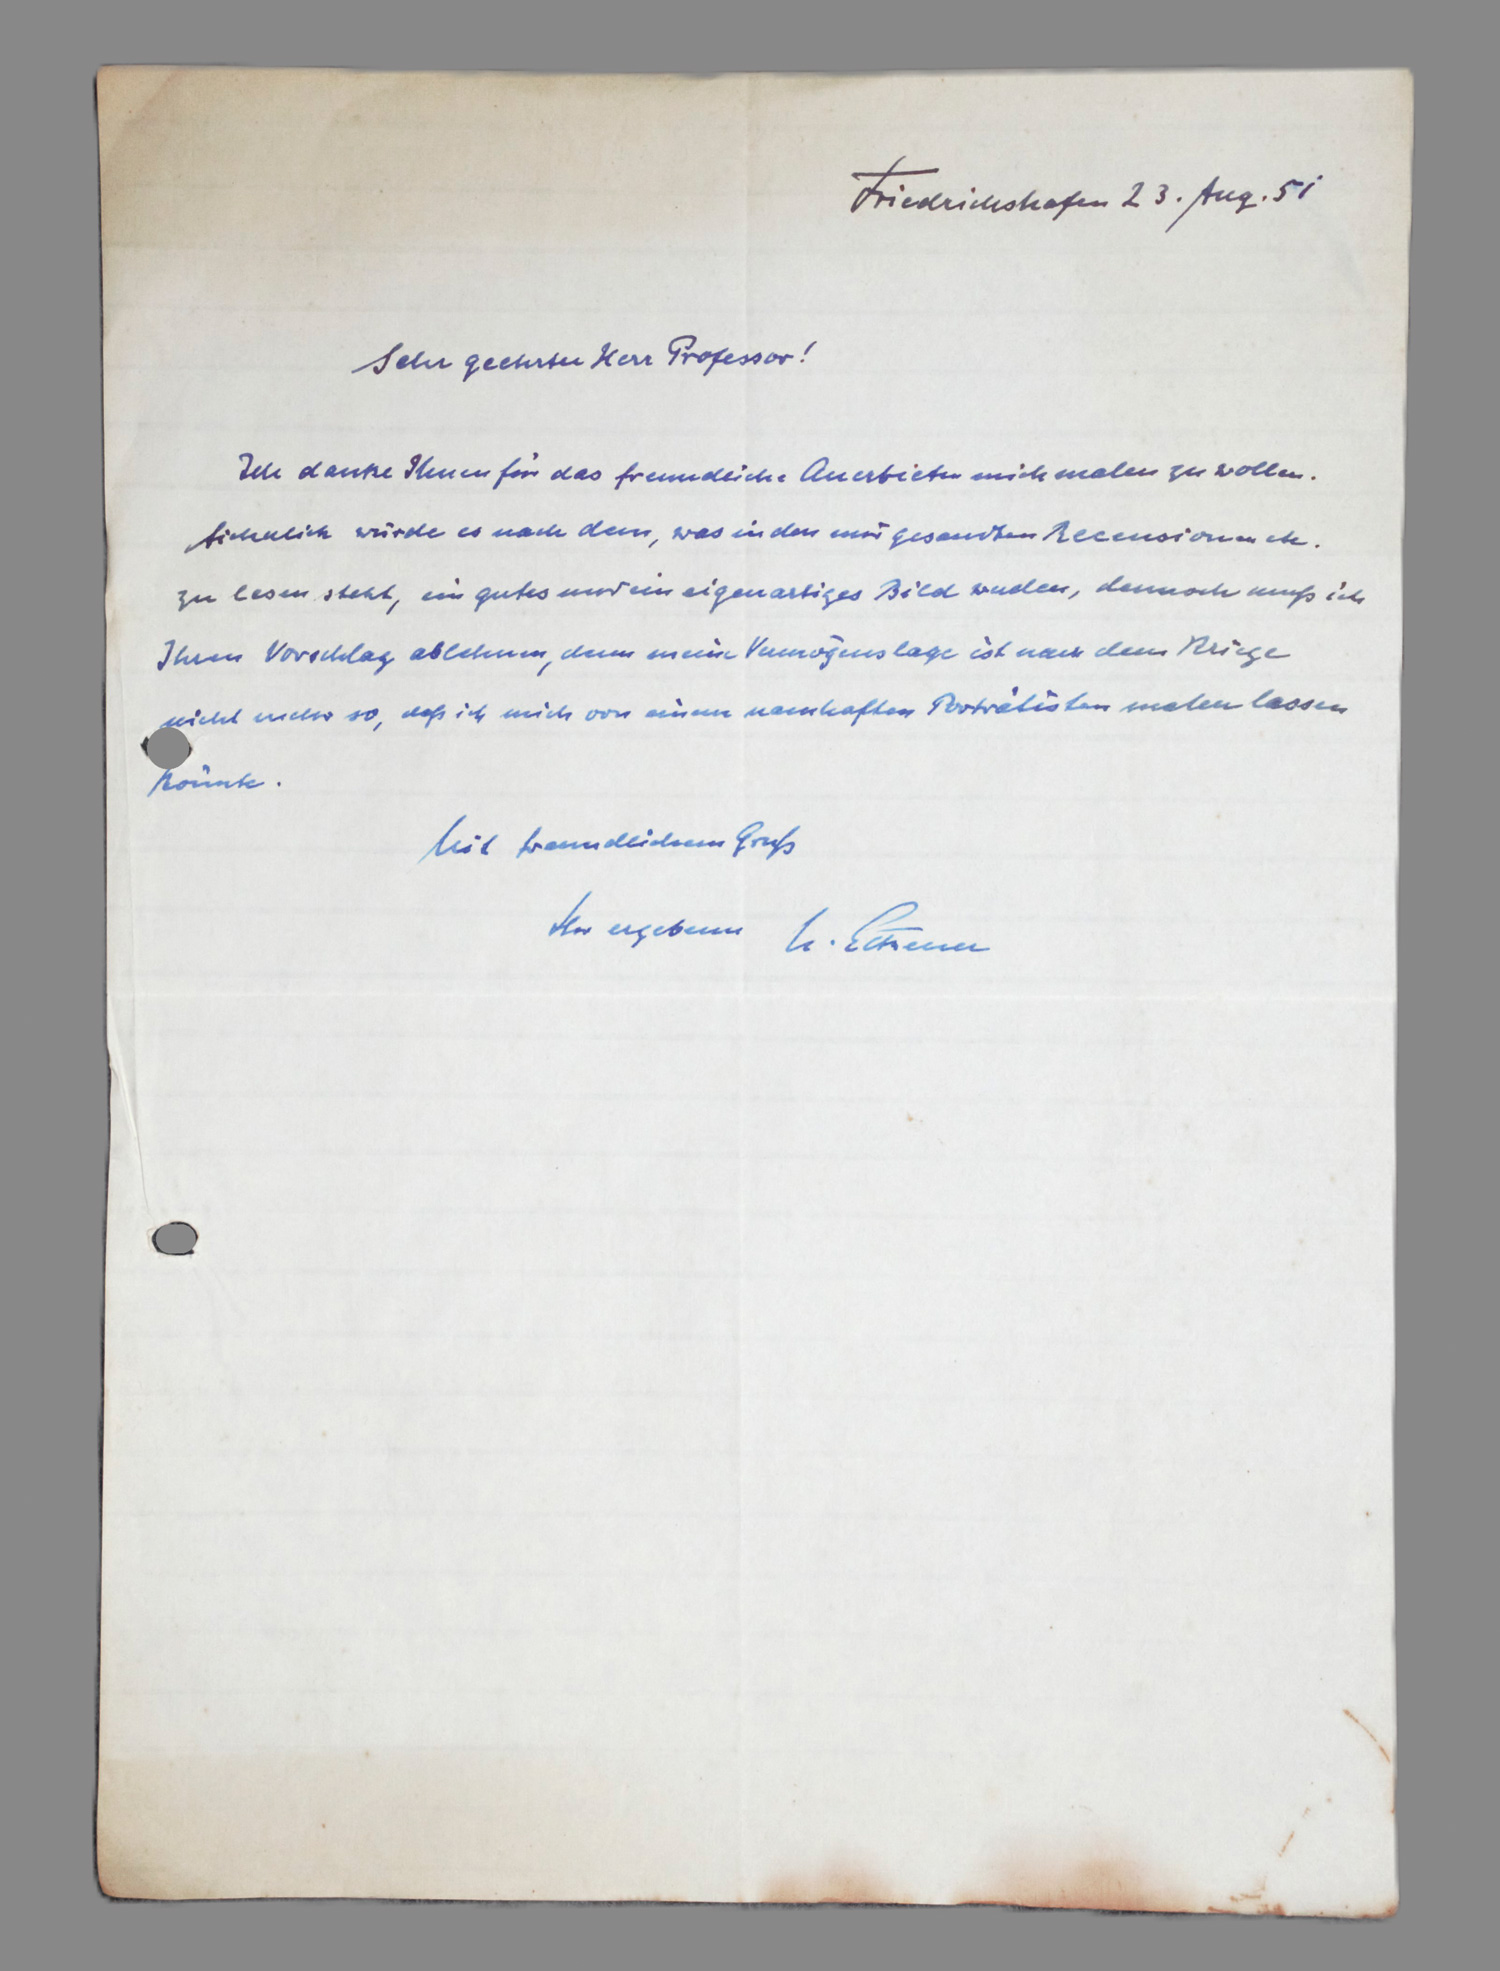 Friedrichshafen 23. Aug. 51
Sehr geehrter Herr Professor!
Ich danke Ihnen für das freundliche Anerbieten mich malen zu wollen.
Sicherlich würde es nach dem, was in den mir gesandten Recensionen etc.
zu lesen steht, ein gutes und ein eigenartiges Bild werden, dennoch muß ich
Ihren Vorschlag ablehnen, denn meine Vermögenslage ist nach dem Kriege
nicht mehr so, daß ich mich von einem namhaften Porträtisten malen lassen
könnte.
Mit freundlichem Gruß
Ihr ergebener H. Eckener